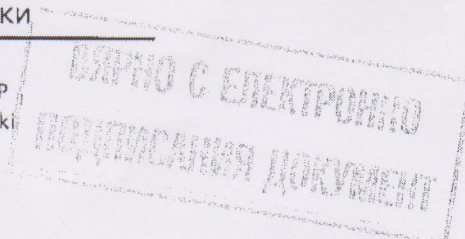 ки
ВЯРНО С ЕЛЕКТРОННО
р
ki
ПОДПИСАНИЯ ДОКУМЕНТ